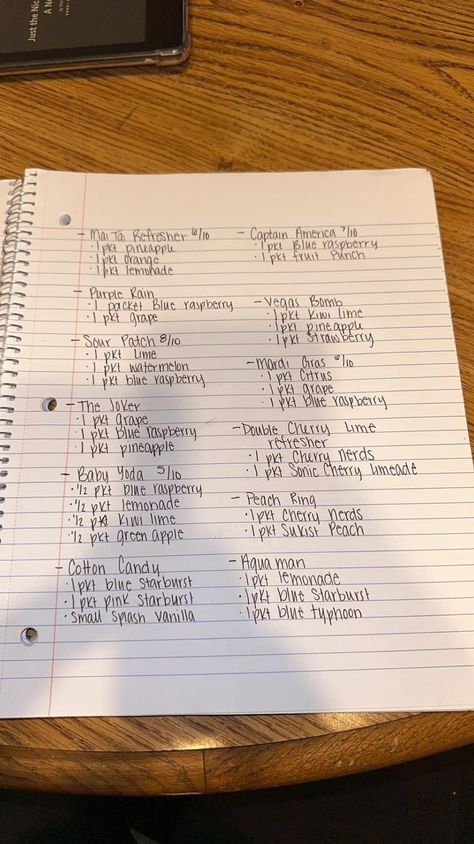 Just the Nic
A No
- Mai Tai Refresher 6/10
· 1 pkt pineapple
· 1 pkt orange
· 1 pkt lemonade
- Purple Rain
· 1 packet Blue raspberry
· 1 pkt grape
- Sour Patch 8/10
· 1 pkt lime
· 1 pkt watermelon
· 1 pkt blue raspberry
- The Joker
· 1 pkt grape
· 1 pkt blue raspberry
· 1 pkt pineapple
- Baby Yoda 5/10
· 1/2 pkt blue raspberry
· 1/2 pkt lemonade
· 1/2 pkt kiwi lime
· 1/2 pkt green apple
- Cotton Candy
· 1 pkt blue starburst
· 1 pkt pink starburst
· small splash vanilla
- Captain America 7/10
· 1 pkt Blue raspberry
· 1 pkt fruit Punch
- Vegas Bomb
· 1 pkt kiwi lime
· 1 pkt pineapple
· 1 pkt strawberry
- Mardi Gras 6/10
· 1 pkt Citrus
· 1 pkt grape
· 1 pkt blue raspberry
- Double Cherry Lime
refresher
· 1 pkt Cherry nerds
· 1 pkt Sonic Cherry limeade
- Peach Ring
· 1 pkt Cherry nerds
· 1 pkt Sukist Peach
- Aquaman
· 1 pkt lemonade
· 1 pkt blue Starburst
· 1 pkt blue typhoon